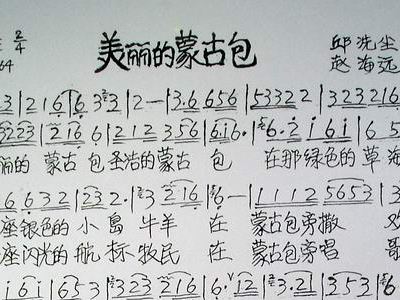 美丽的蒙古包
2/4
64
邱洗尘
赵海远
3|2 1 6 6 3 3|2-|3.6 656|5332 2|323216
3223|2 16 6|212 356|6i6.|6.2 i6i|6 5
丽的 蒙古 包圣洁的蒙古 包 在那绿色的 草 海
6 6 3 2|23 2.|3 2 16|6-|1 1 1 2 5653|3
座银色的 小 岛 牛羊 在 蒙古包旁撒 欢
座闪光的 航 标 牧民 在 蒙古包旁唱 歌
i6i|653|323 216|6.12|3.21|353|6